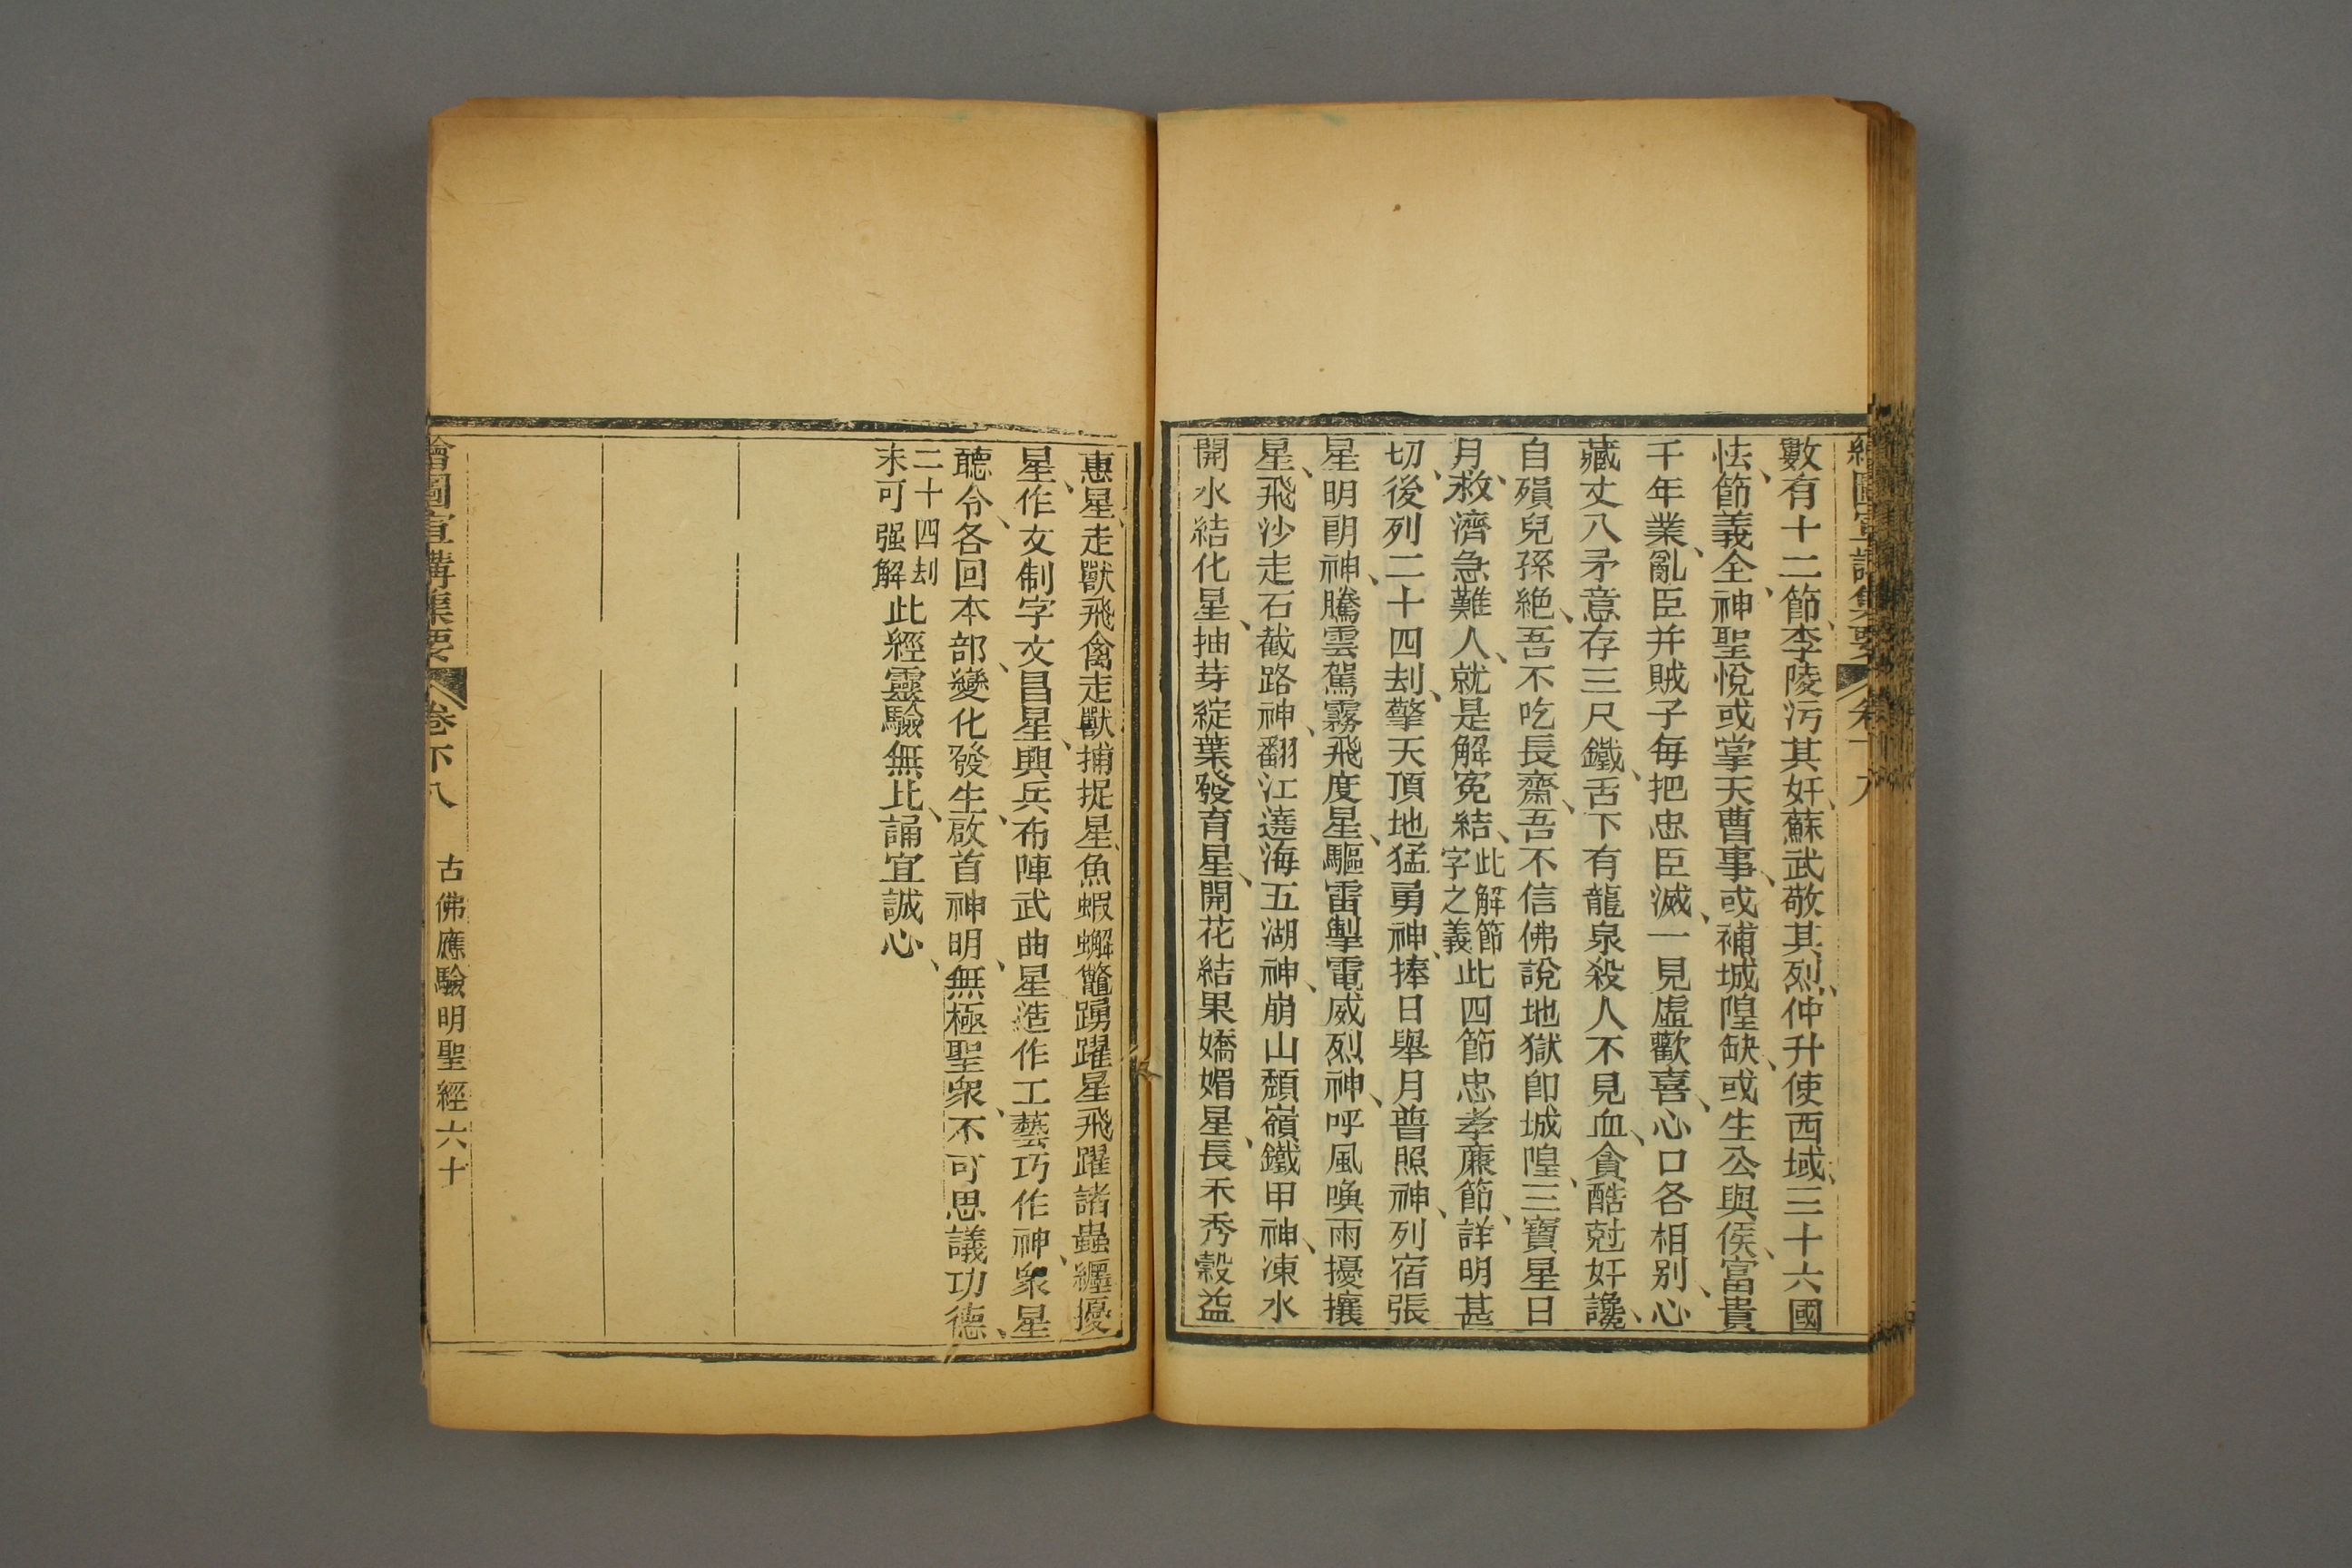 數有十二節、李陵污其奸、蘇武敬其烈、仲升使西域、三十六國
怯、節義全、神聖悅或掌天曹事、或補城隍缺、或生公與侯、富貴
千年業、亂臣并賊子每把忠臣滅、一見虛歡喜、心口各相別、心
藏丈八矛意存三尺鐵、舌下有龍泉殺人不見血、貪酷尅奸讒、
自殞兒孫絶、吾不吃長齋、吾不信佛說地獄卽城隍、三寶星日
月、救濟急難人、就是解寃結、此解節字之義此四節忠孝廉節、詳明甚
切、後列二十四刦、擎天頂地猛勇神、捧日舉月普照神、列宿張
星明朗神、騰雲駕霧飛度星、驅雷掣電威烈神、呼風喚雨擾攘
星、飛沙走石截路神、翻江遶海五湖神、崩山頹嶺鐵甲神、凍水
開水結化星、抽芽綻葉發育星、開花結果嬌媚星、長禾秀穀益
惠星走獸飛禽走獸捕捉星、魚蝦蠏鼈踴躍星飛躍諸蟲纒擾
星、作文制字文昌星、興兵布陣武曲星造作工藝巧作神、衆星
聽令、各回本部、變化發生、啟首神明、無極聖衆、不可思議功德、
二十四刦末可强解此經靈驗無比、誦宜誠心、
繪圖宣講集要 卷下八 古佛應驗明聖經六十